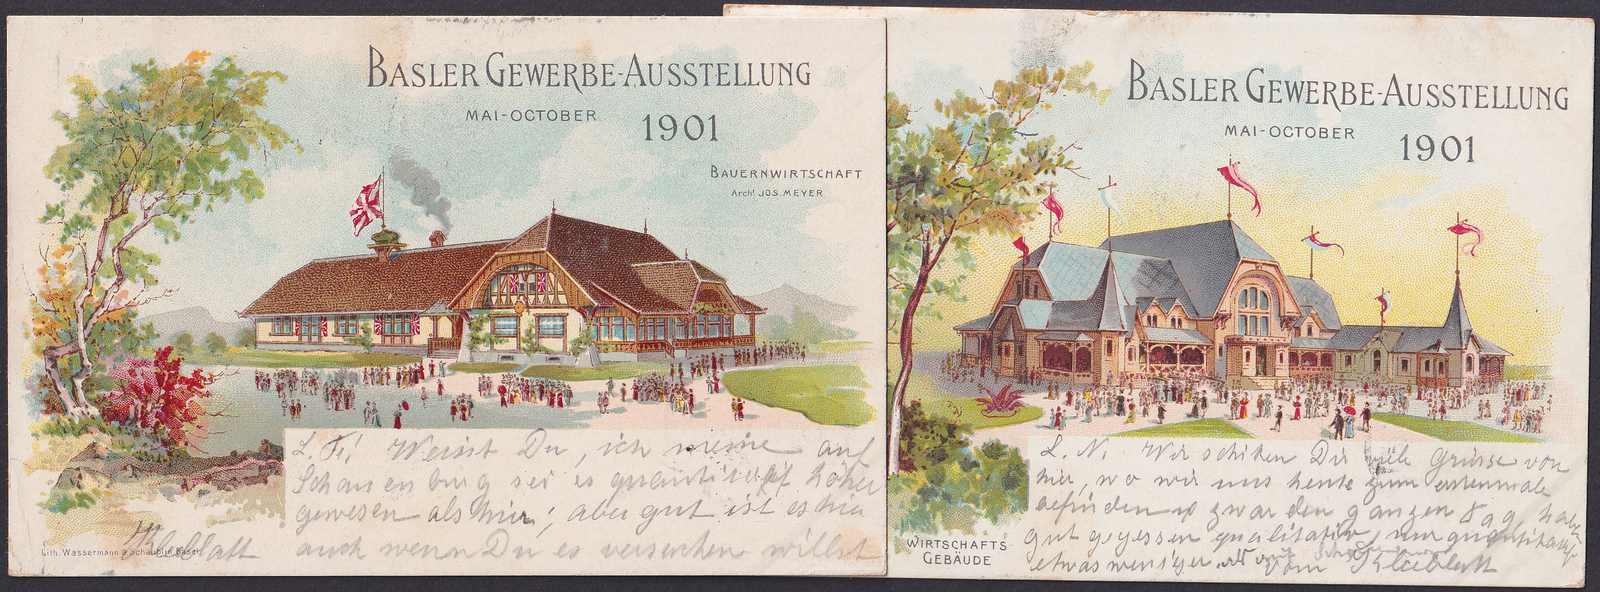 BASLER GEWERBE-AUSSTELLUNG
MAI-OCTOBER
1901
BAUERNWIRTSCHAFT
Archt. JOS. MEYER
L. Fr! Weisst Du, ich meine auf
Schauenburg sei es quantitatif höher
gewesen als hier; aber gut ist es hie
auch wenn Du es versuchen willst
Kleeblatt
Lith. Wassermann & Schäublin, Basel
BASLER GEWERBE-AUSSTELLUNG
MAI-OCTOBER
1901
WIRTSCHAFTS-
GEBÄUDE
L. N. Wir schiken Dir viele Grüsse von
hier, wo wir uns heute zum erstenmale
befinden u zwar den ganzen Tag, haben
gut gegessen qualitativ, nur quantitativ
etwas weniger. vom Kleeblatt